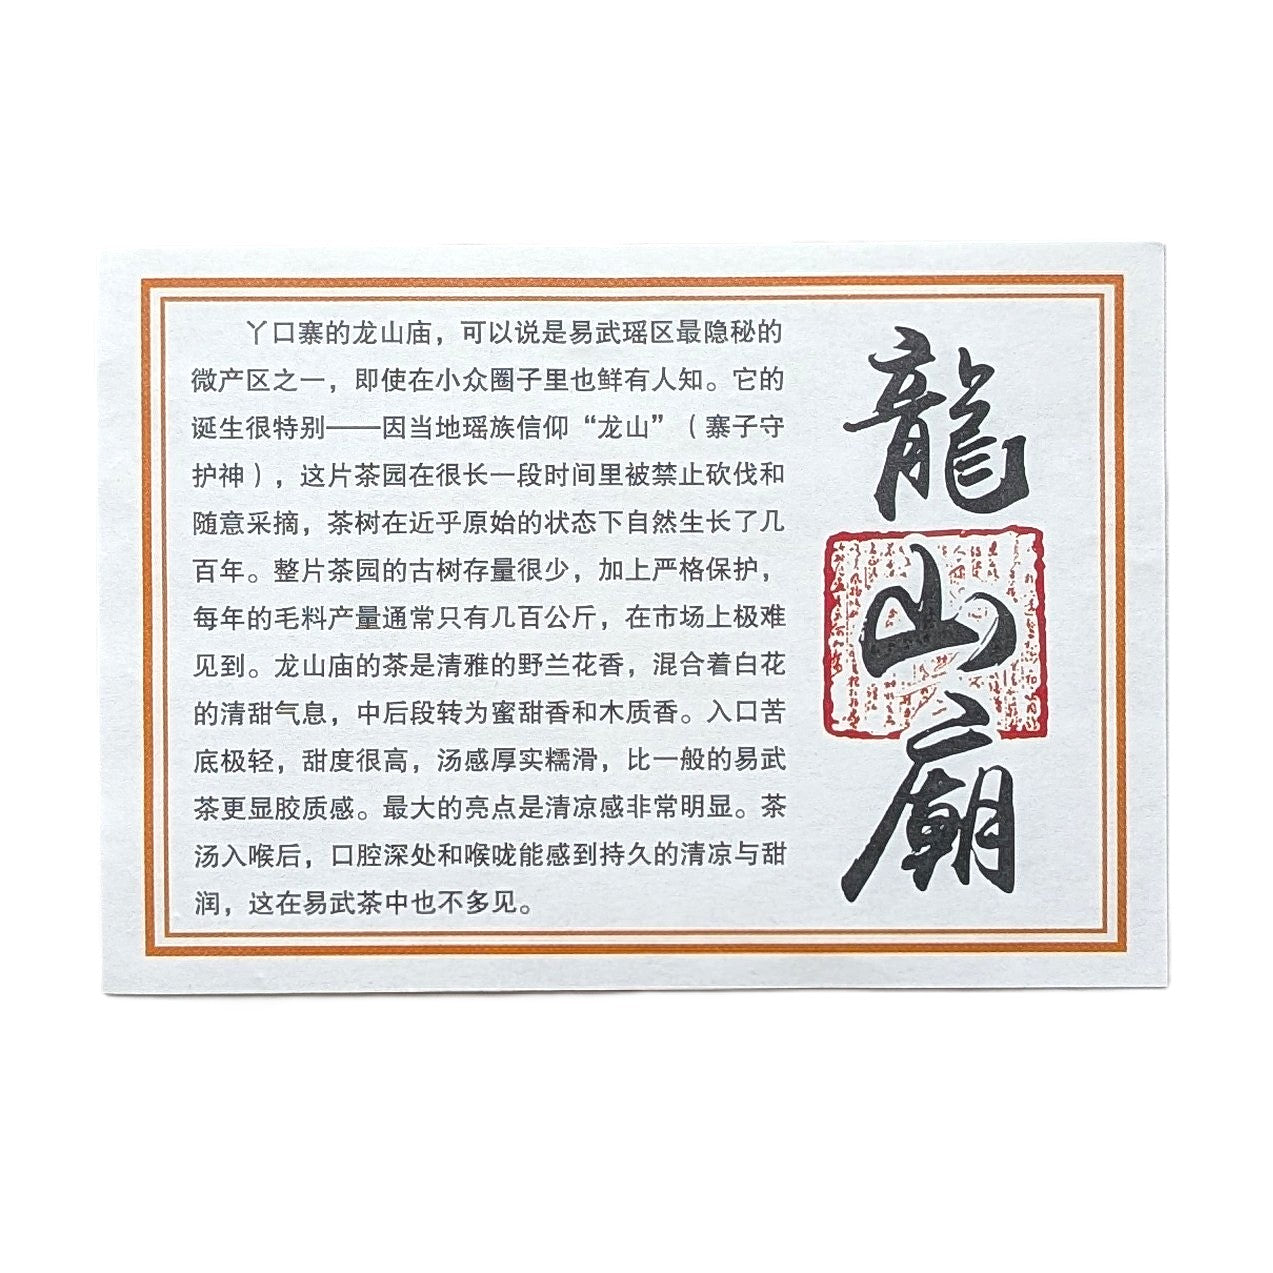 丫口寨的龙山庙，可以说是易武瑶区最隐秘的
微产区之一，即使在小众圈子里也鲜有人知。它的
诞生很特别——因当地瑶族信仰“龙山”（寨子守
护神），这片茶园在很长一段时间里被禁止砍伐和
随意采摘，茶树在近乎原始的状态下自然生长了几
百年。整片茶园的古树存量很少，加上严格保护，
每年的毛料产量通常只有几百公斤，在市场上极难
见到。龙山庙的茶是清雅的野兰花香，混合着白花
的清甜气息，中后段转为蜜甜香和木质香。入口苦
底极轻，甜度很高，汤感厚实糯滑，比一般的易武
茶更显胶质感。最大的亮点是清凉感非常明显。茶
汤入喉后，口腔深处和喉咙能感到持久的清凉与甜
润，这在易武茶中也不多见。
龍山廟